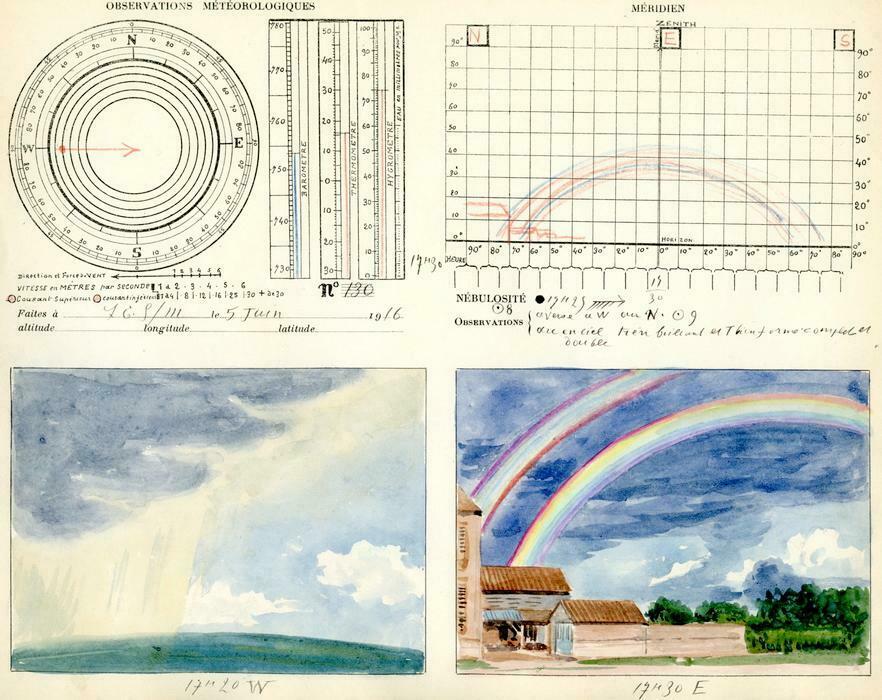 OBSERVATIONS MÉTÉOROLOGIQUES
N
W
E
S
780
770
760
750
740
730
BAROMÈTRE
50
40
30
20
10
0
10
20
30
THERMOMÈTRE
100
90
80
70
60
50
40
30
20
10
0
HYGROMÈTRE
EAU en MILLIMÈTRES
Direction et Force du VENT
1 2 3 4 5 6
VITESSE en MÈTRES par SECONDE
1 a 2 - 3 - 4 - 5 - 6
Courant Supérieur courant inférieur
No 130
Faites à le 5 Juin 1916
altitude longitude latitude
MÉRIDIEN
ZENITH
N E S
90°
80
70
60
50
40
30
20
10°
0°
90°
80°
70°
60°
50°
40°
30°
20°
10°
0°
HORIZON
90° 80° 70° 60° 50° 40° 30° 20° 10° 0° 10° 20° 30° 40° 50° 60° 70° 80° 90°
17H30
HEURE
17
30
NÉBULOSITÉ 17H25
8
OBSERVATIONS averse à W au N. 9
arc en ciel très brillant et complet et
double
17H20 W
17H30 E